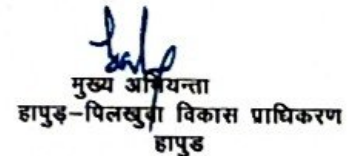 मुख्य अभियन्ता
हापुड़-पिलखुवा विकास प्राधिकरण
हापुड